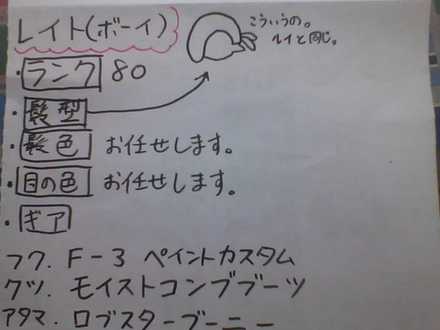 レイト(ボーイ)
こういうの。
ルイと同じ。
・ランク 80
・髪型
・髪色 お任せします。
・目の色 お任せします。
・ギア
フク. F-3 ペイントカスタム
クツ. モイストコンブブーツ
アタマ. ロブスターブーニー